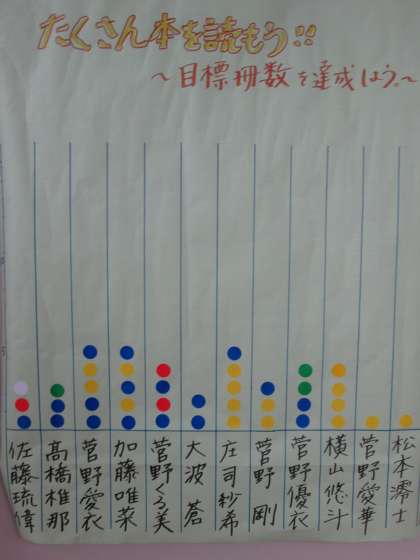 たくさん本を読もう!!
〜目標冊数を達成しよう。〜
佐藤琉偉
高橋椎那
菅野愛衣
加藤唯菜
菅野くる美
大波蒼
庄司紗希
菅野剛
菅野優衣
横山悠斗
菅野愛華
松本澪士